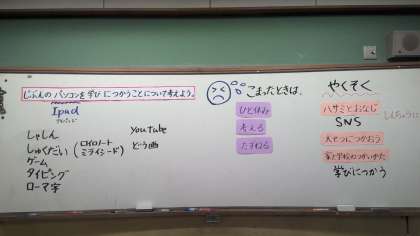 じぶんの パソコンを 学びにつかうことについて考えよう。
Ipad
しゃしん
しゅくだい(ロイロノート
ミライシード)
ゲーム
タイピング
ローマ字
youtube
どう画
こまったときは、
ひと休み
考える
たずねる
やくそく
ハサミとおなじ
SNS
大せつにつかおう
家と学校のつかいかた
学びにつかう
しんちょうに